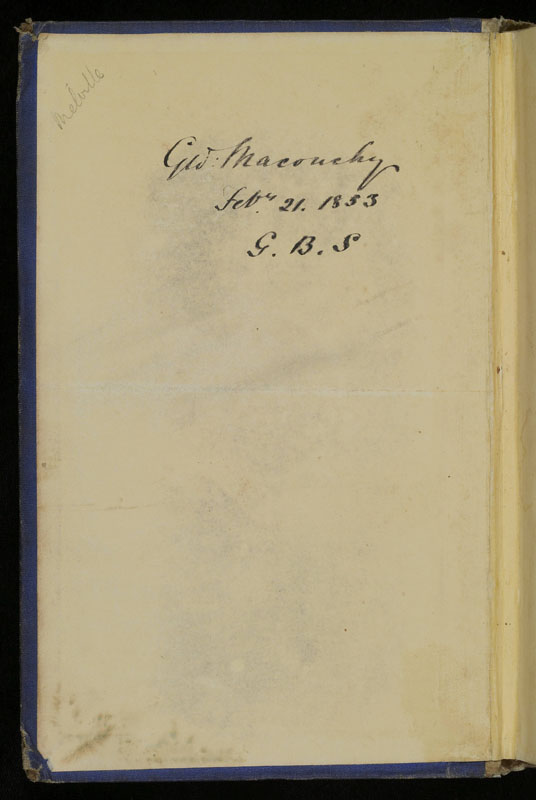 Melville
Geo: Maconchy
Feby 21. 1853
G. B. S